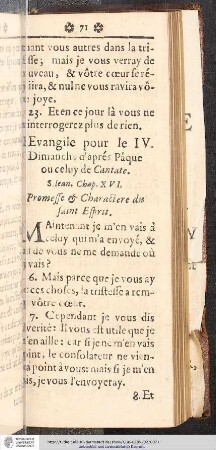 71
tenant vous autres dans la tri-
stesse; mais je vous verray de
nouveau, & vôtre cœur se ré-
jöira, & nul ne vous ravira vô-
tre joye.
23. Et en ce jour là vous ne
m'interrogerez plus de rien.
Evangile pour le IV.
Dimanche d'aprés Pâque
ou celuy de Cantate.
S. Iean. Chap. XVI.
Promesse & Charactere du
saint Esprit.
MAintenant je m'en vais à
celuy qui m'a envoyé, &
nul de vous ne me demande où
vais?
6. Mais parce que je vous ay
ces choses, la tristesse a rem-
vôtre cœur.
7. Cependant je vous dis
verité: Il vous est utile que je
m'en aille: car si je ne m'en vais
point, le consolateur ne vien-
point à vous: mais si je m'en
vais, je vous l'envoyeray.
8. Et